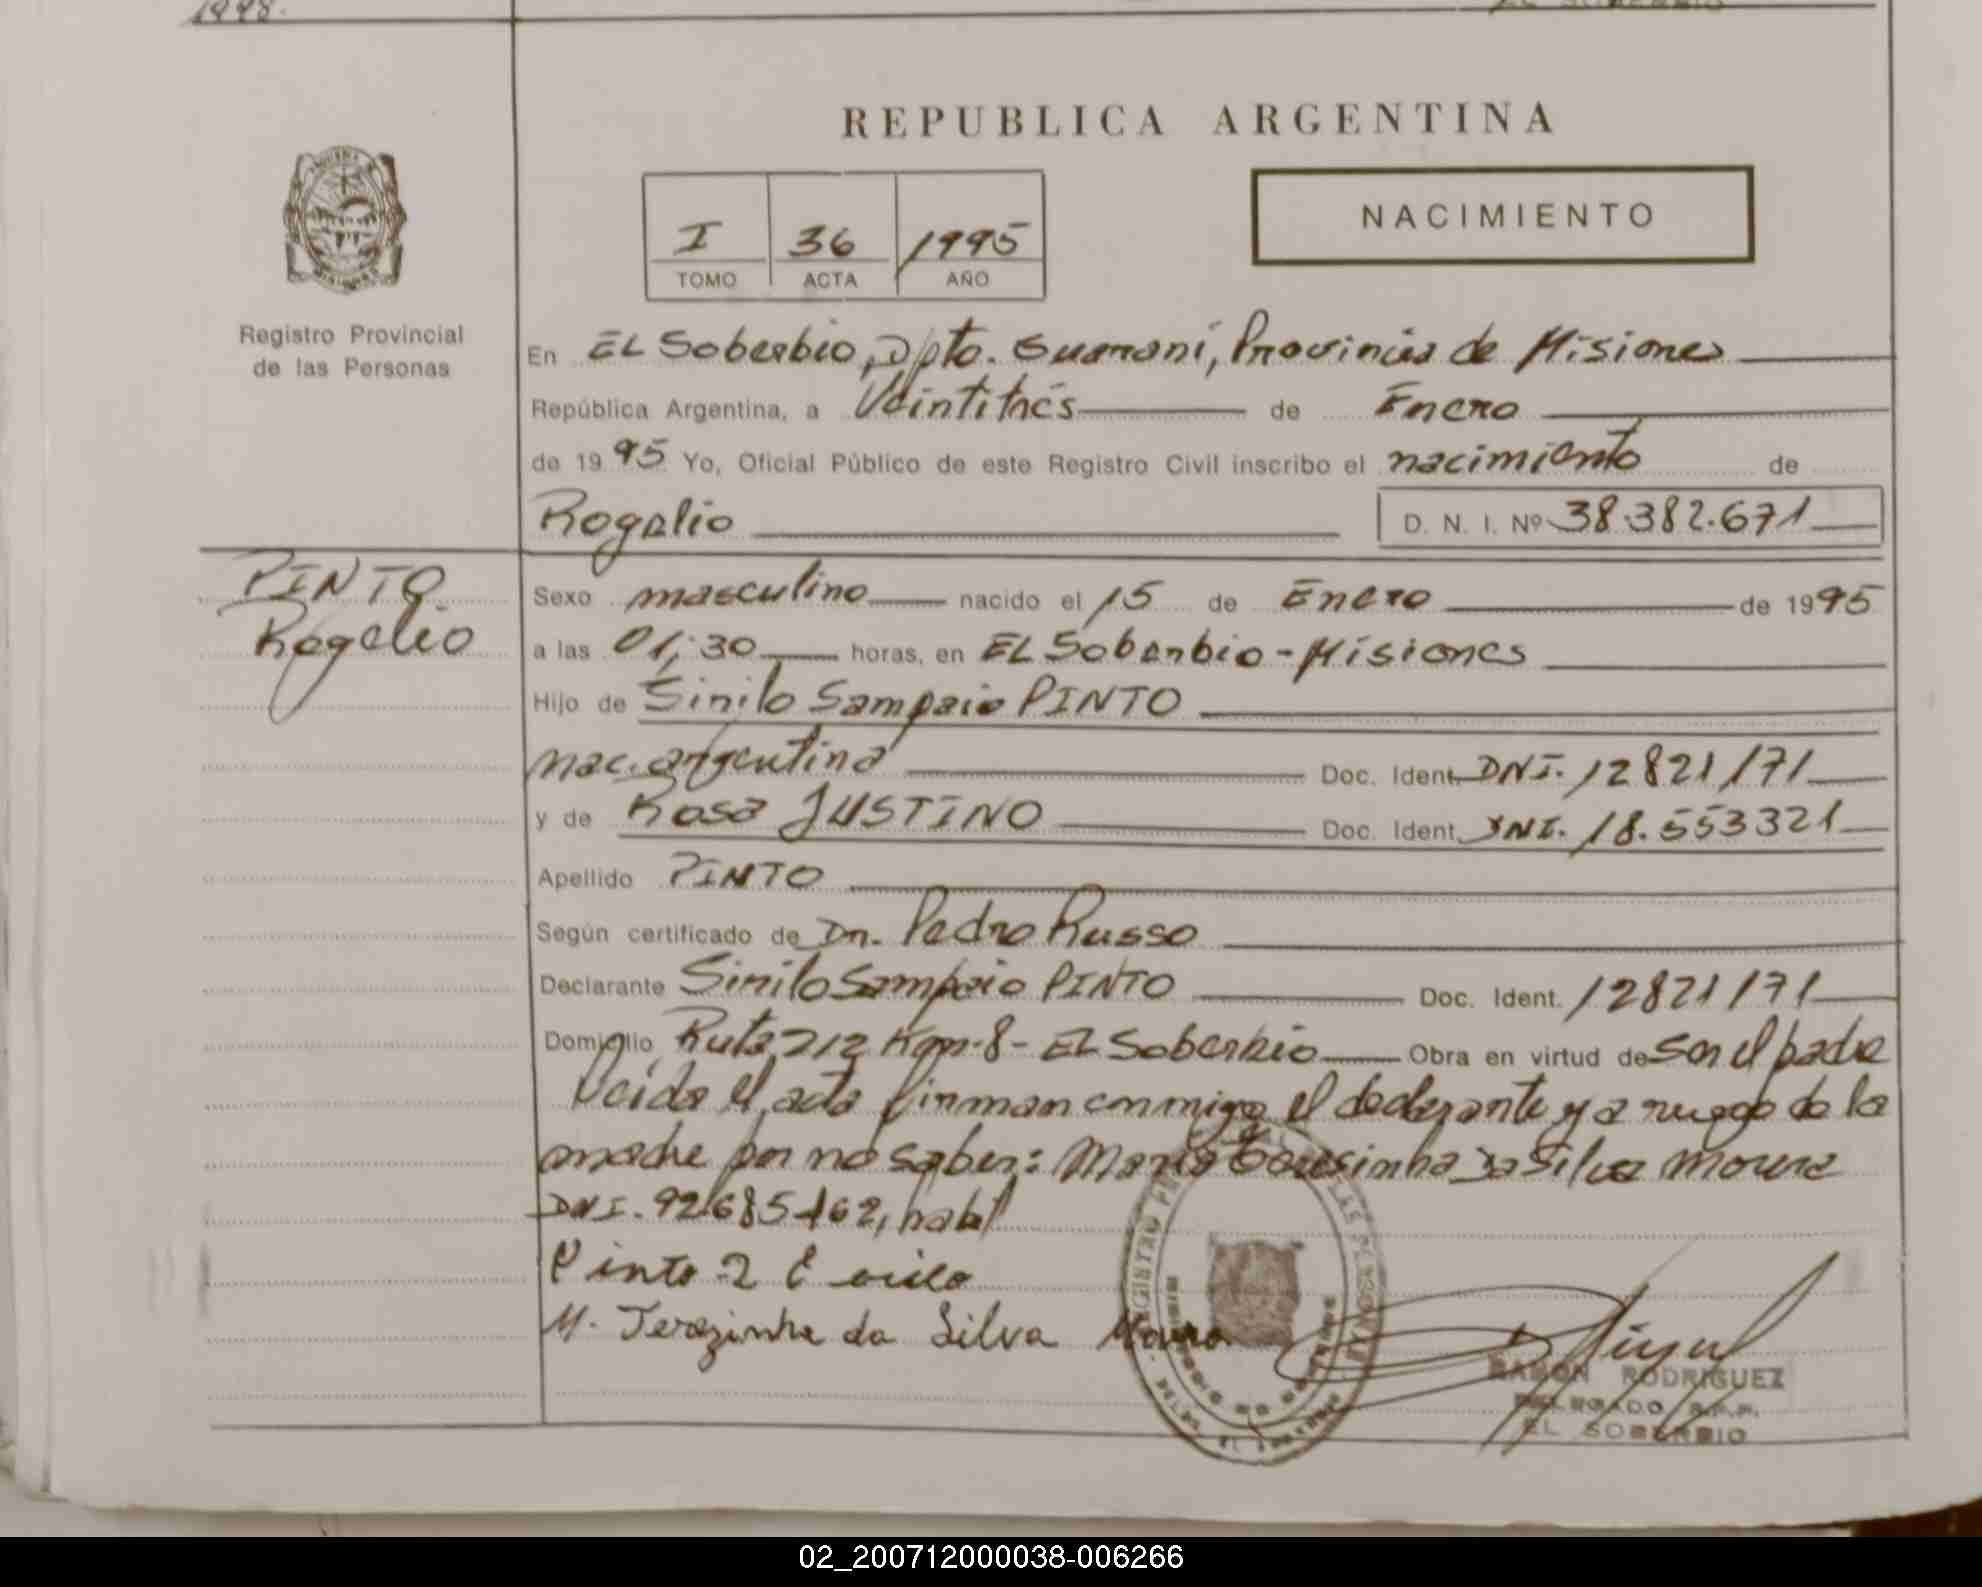 1998.
REPUBLICA ARGENTINA
I 36 1995
TOMO ACTA AÑO
NACIMIENTO
Registro Provincial
de las Personas
En EL Soberbio, Dpto. Guaraní, Provincia de Misiones
República Argentina, a Veintitrés de Enero
de 1995 Yo, Oficial Público de este Registro Civil inscribo el nacimiento de
Rogelio D. N. I. Nº 38.382.671
PINTO
Rogelio
Sexo masculino nacido el 15 de Enero de 1995
a las 01,30 horas, en EL Soberbio - Misiones
Hijo de Sirilo Sampaio PINTO
nac. argentina Doc. Ident. DNI. 12821171
y de Rosa JUSTINO Doc. Ident. DNI. 18.553321
Apellido PINTO
Según certificado de Dr. Pedro Russo
Declarante Sirilo Sampaio PINTO Doc. Ident. 12821171
Domicilio Ruta 212 Km-8- EL Soberbio Obra en virtud de ser el padre
Leída el acta firman conmigo el declarante y a ruego de la
madre por no saber: Maria Teresinha da Silva Moura
DNI. 92685162, habil
Pinto
M. Terezinha da Silva Moura
RAMON RODRIGUEZ
DELEGADO R.P.P.
EL SOBERBIO
02_200712000038-006266